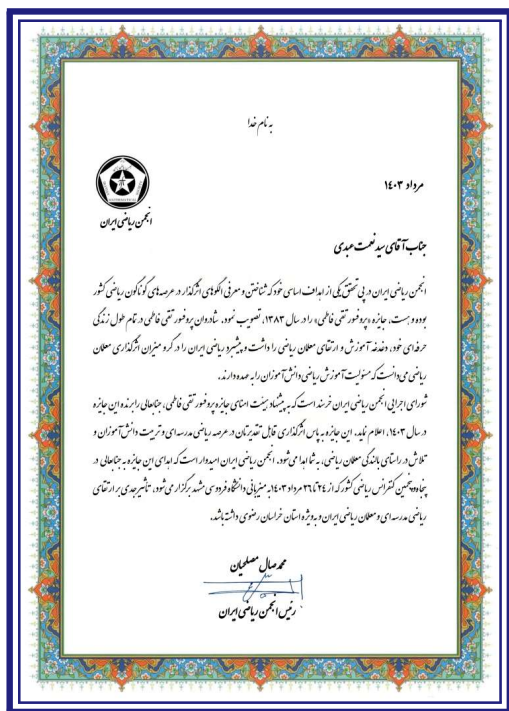 به نام خدا
مرداد ۱۴۰۳
انجمن ریاضی ایران
جناب آقای سید نعمت عبدی
انجمن ریاضی ایران در پی تحقق یکی از اهداف اساسی خود که شناختن و معرفی الگوهای اثرگذار در عرصه‌های گوناگون ریاضی کشور
بوده و هست، جایزه «پروفسور تقی فاطمی» را در سال ۱۳۸۳، تصویب نمود. شادروان پروفسور تقی فاطمی در تمام طول زندگی
حرفه‌ای خود، دغدغه آموزش و ارتقای معلمان ریاضی را داشت و پیشبرد ریاضی ایران را در گرو میزان اثرگذاری معلمان
ریاضی می‌دانست که مسئولیت آموزش ریاضی دانش‌آموزان را به عهده دارند.
شورای اجرایی انجمن ریاضی ایران خرسند است که به پیشنهاد هیئت امنای جایزه پروفسور تقی فاطمی، جنابعالی را برنده این جایزه
در سال ۱۴۰۳، اعلام نماید. این جایزه به پاس اثرگذاری قابل تقدیرتان در عرصه ریاضی مدرسه‌ای و تربیت دانش‌آموزان و
تلاش در راستای بالندگی معلمان ریاضی، به شما اهدا می‌شود. انجمن ریاضی ایران امیدوار است که اهدای این جایزه به جنابعالی در
پنجاه و پنجمین کنفرانس ریاضی کشور که از ۲۴ تا ۲۶ مرداد ۱۴۰۳ به میزبانی دانشگاه فردوسی مشهد برگزار می‌شود، تأثیر جدی بر ارتقای
ریاضی مدرسه‌ای و معلمان ریاضی ایران و به ویژه استان خراسان رضوی داشته باشد.
محمد صال مصلحیان
رئیس انجمن ریاضی ایران